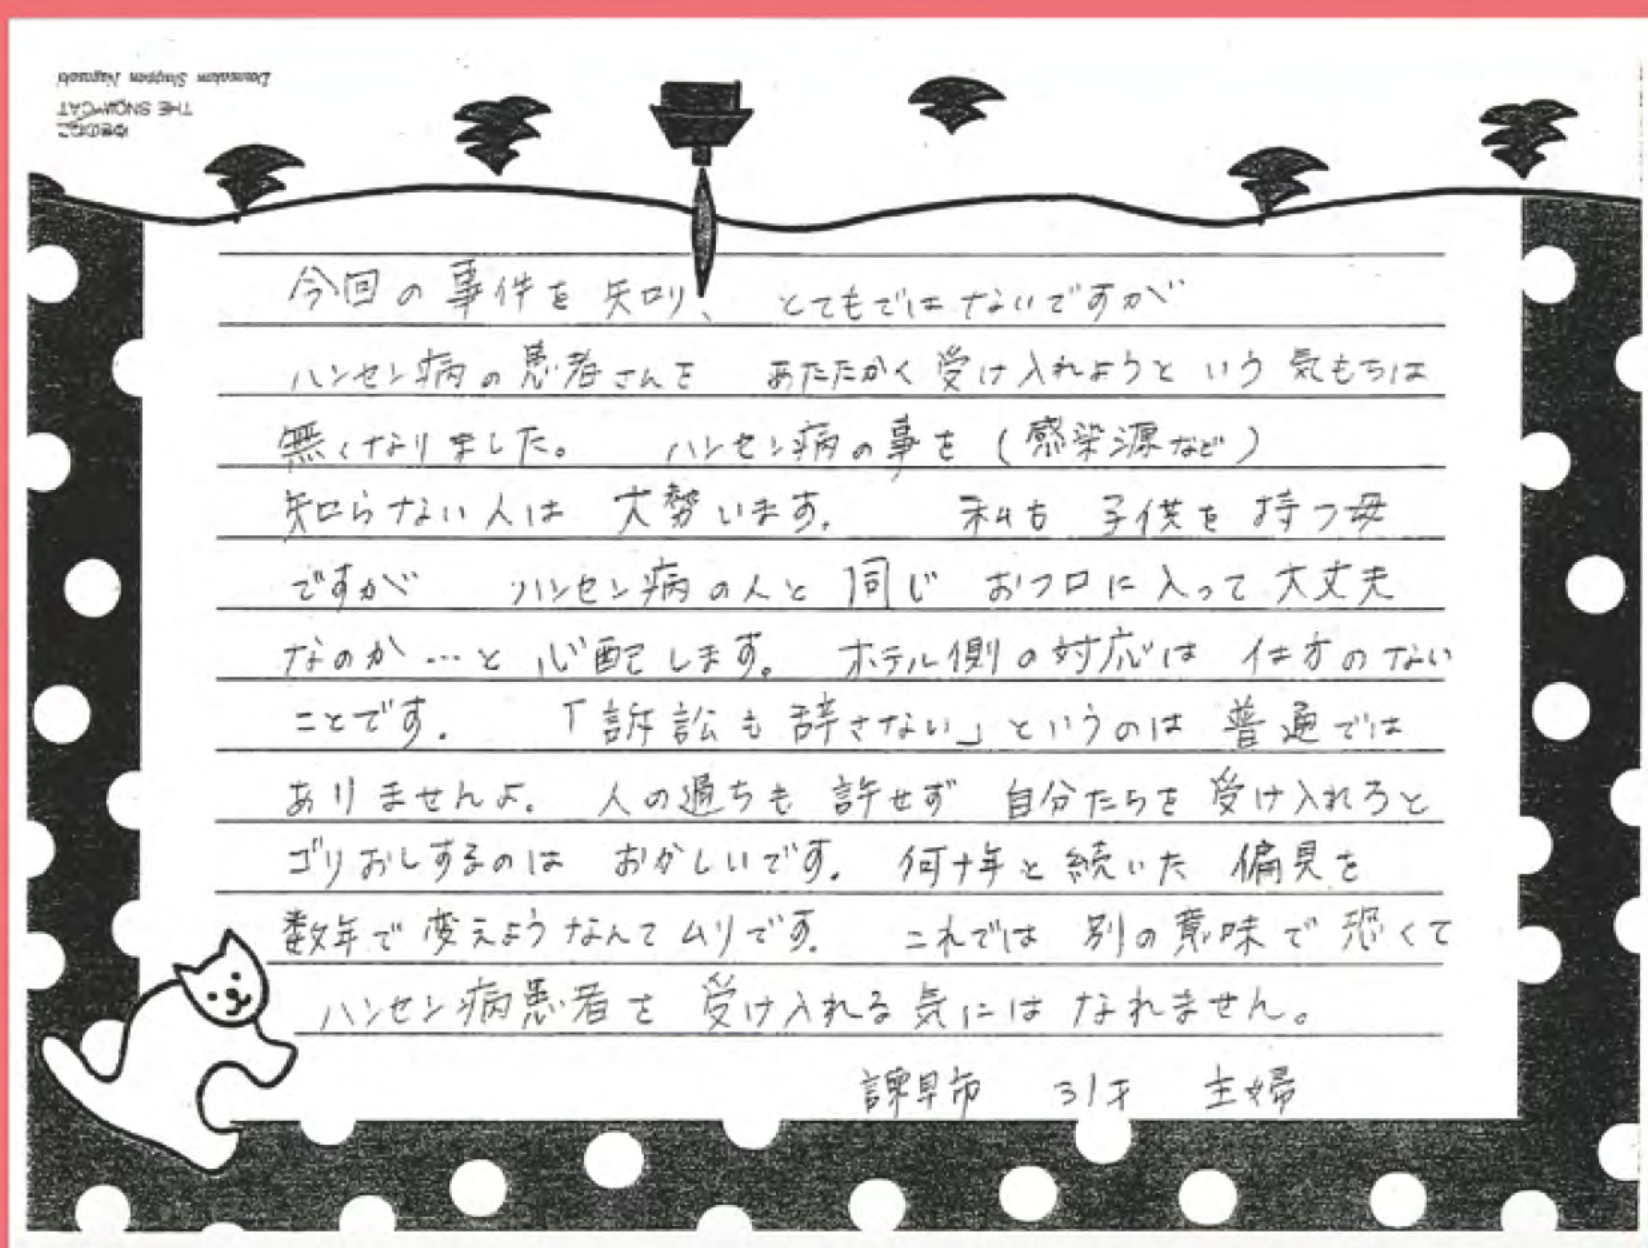 Downsalom Shappen Nagasaki
THE SNOWCAT
ゆきのねこ
今回の事件を知り、 とてもではないですが
ハンセン病の患者さんを あたたかく受け入れようという気もちは
無くなりました。 ハンセン病の事を(感染源など)
知らない人は 大勢います。 私も 子供を持つ母
ですが ハンセン病の人と同じ おフロに入って大丈夫
なのか…と心配します。 ホテル側の対応は 仕方のない
ことです。 「訴訟も辞さない」というのは 普通では
ありませんよ。 人の過ちも 許せず 自分たちを受け入れろと
ゴリおしするのは おかしいです。 何十年と続いた 偏見を
数年で変えようなんてムリです。 これでは 別の意味で恐くて
ハンセン病患者を 受け入れる気にはなれません。
諫早市 31才 主婦